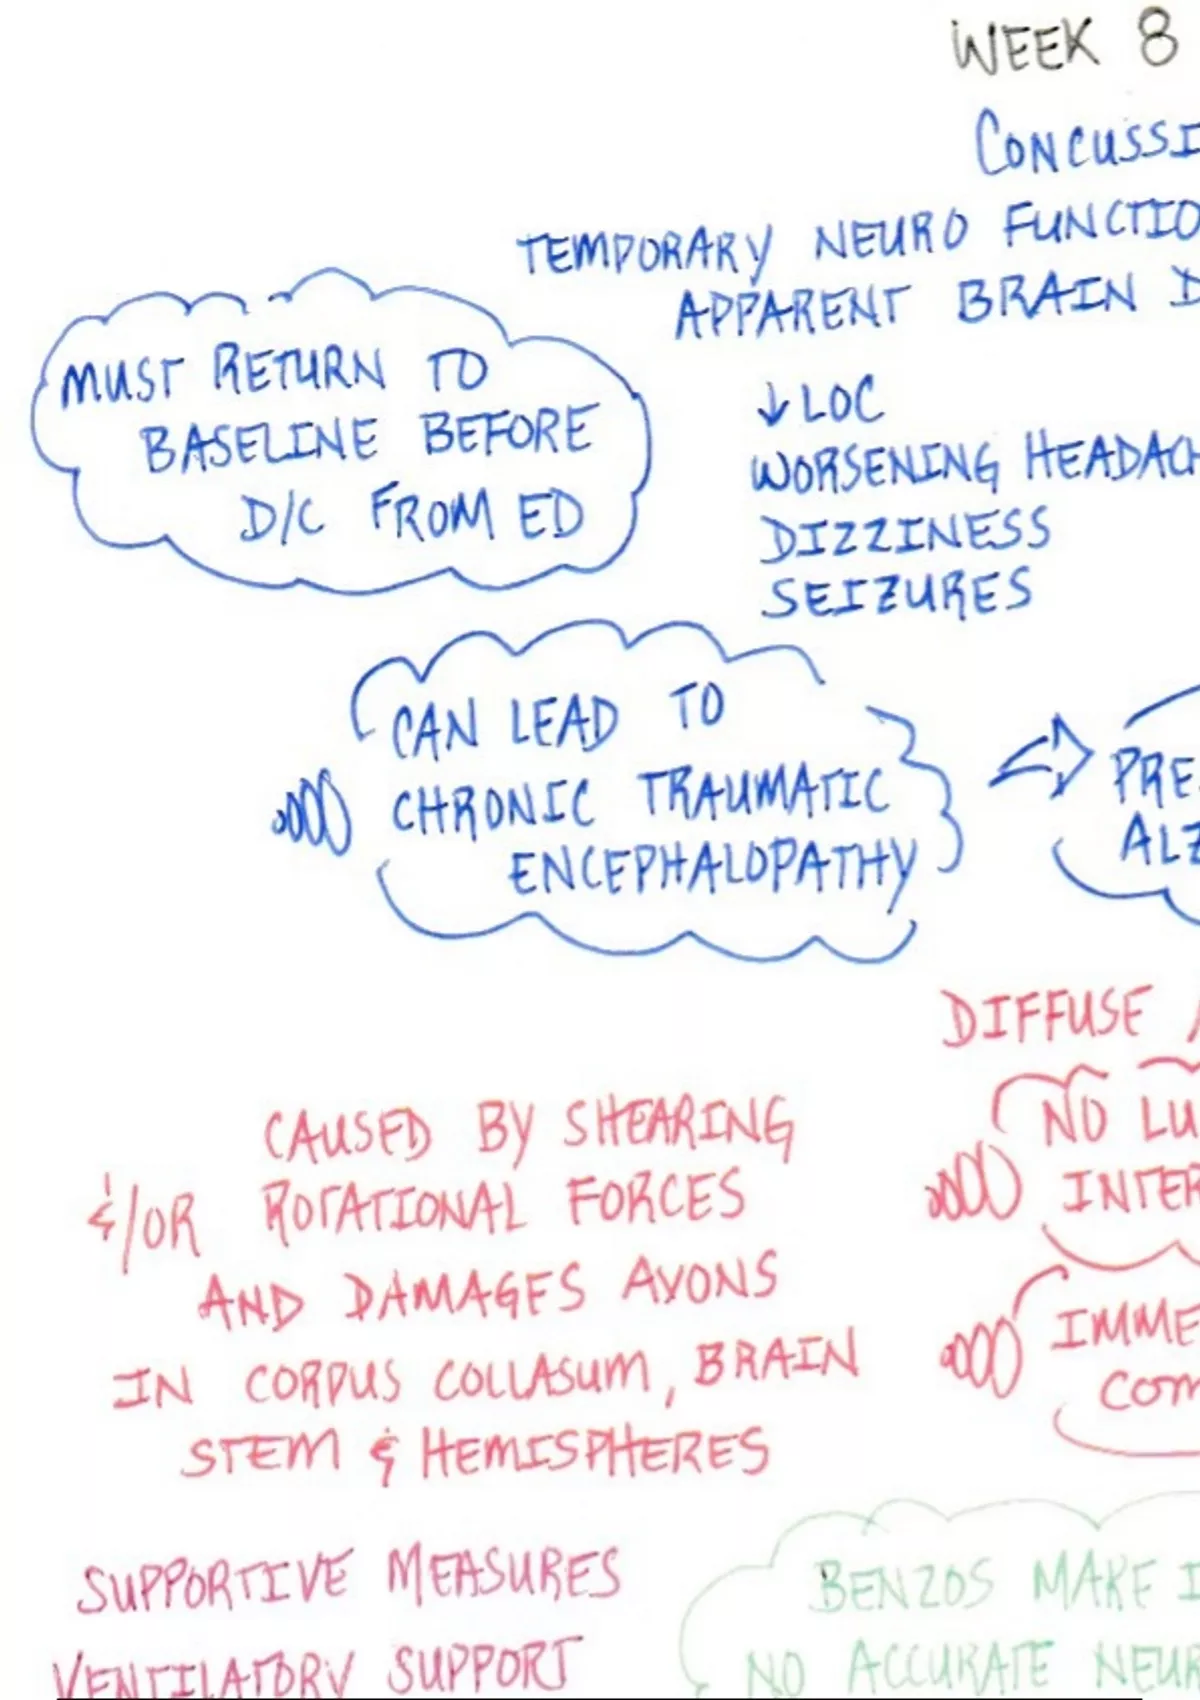 WEEK 8
CONCUSSI
TEMPORARY NEURO FUNCTIO
APPARENT BRAIN D
MUST RETURN TO
BASELINE BEFORE
D/C FROM ED
↓ LOC
WORSENING HEADACH
DIZZINESS
SEIZURES
CAN LEAD TO
CHRONIC TRAUMATIC
ENCEPHALOPATHY
PRE
ALZ
DIFFUSE
NO LU
INTER
IMME
COM
CAUSED BY SHEARING
&/OR ROTATIONAL FORCES
AND DAMAGES AXONS
IN CORPUS COLLASUM, BRAIN
STEM & HEMISPHERES
SUPPORTIVE MEASURES
VENTILATORY SUPPORT
BENZOS MAKE I
NO ACCURATE NEUR